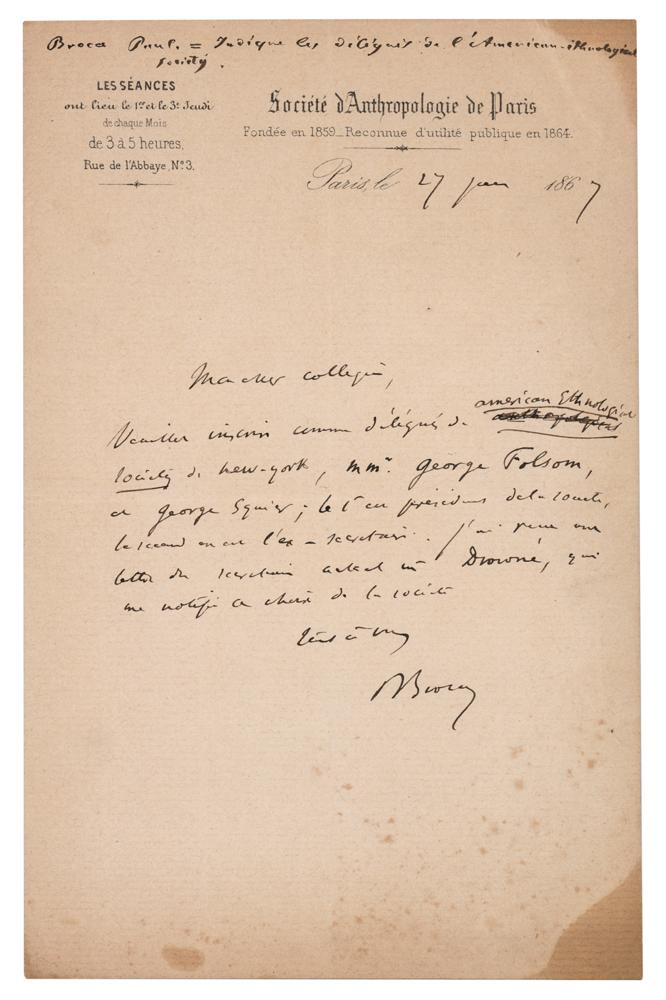 Broca Paul. = Indique les délégués de l'American-ethnological
society.
LES SÉANCES
ont lieu le 1er et le 3e Jeudi
de chaque Mois
de 3 à 5 heures,
Rue de l'Abbaye, No 3.
Société d'Anthropologie de Paris
Fondée en 1859_Reconnue d'utilité publique en 1864.
Paris, le 27 juin 1867
Mon cher collègue,
american Ethnological
Veuillez inscrire comme délégués de
society de new-york, mm. George Folsom,
et George Squier; le 1er est président de la société,
le second en est l'ex-secrétaire. J'ai reçu une
lettre du secrétaire actuel mr Drowne, qui
me notifie ce choix de la société
Tout à vous
P Broca